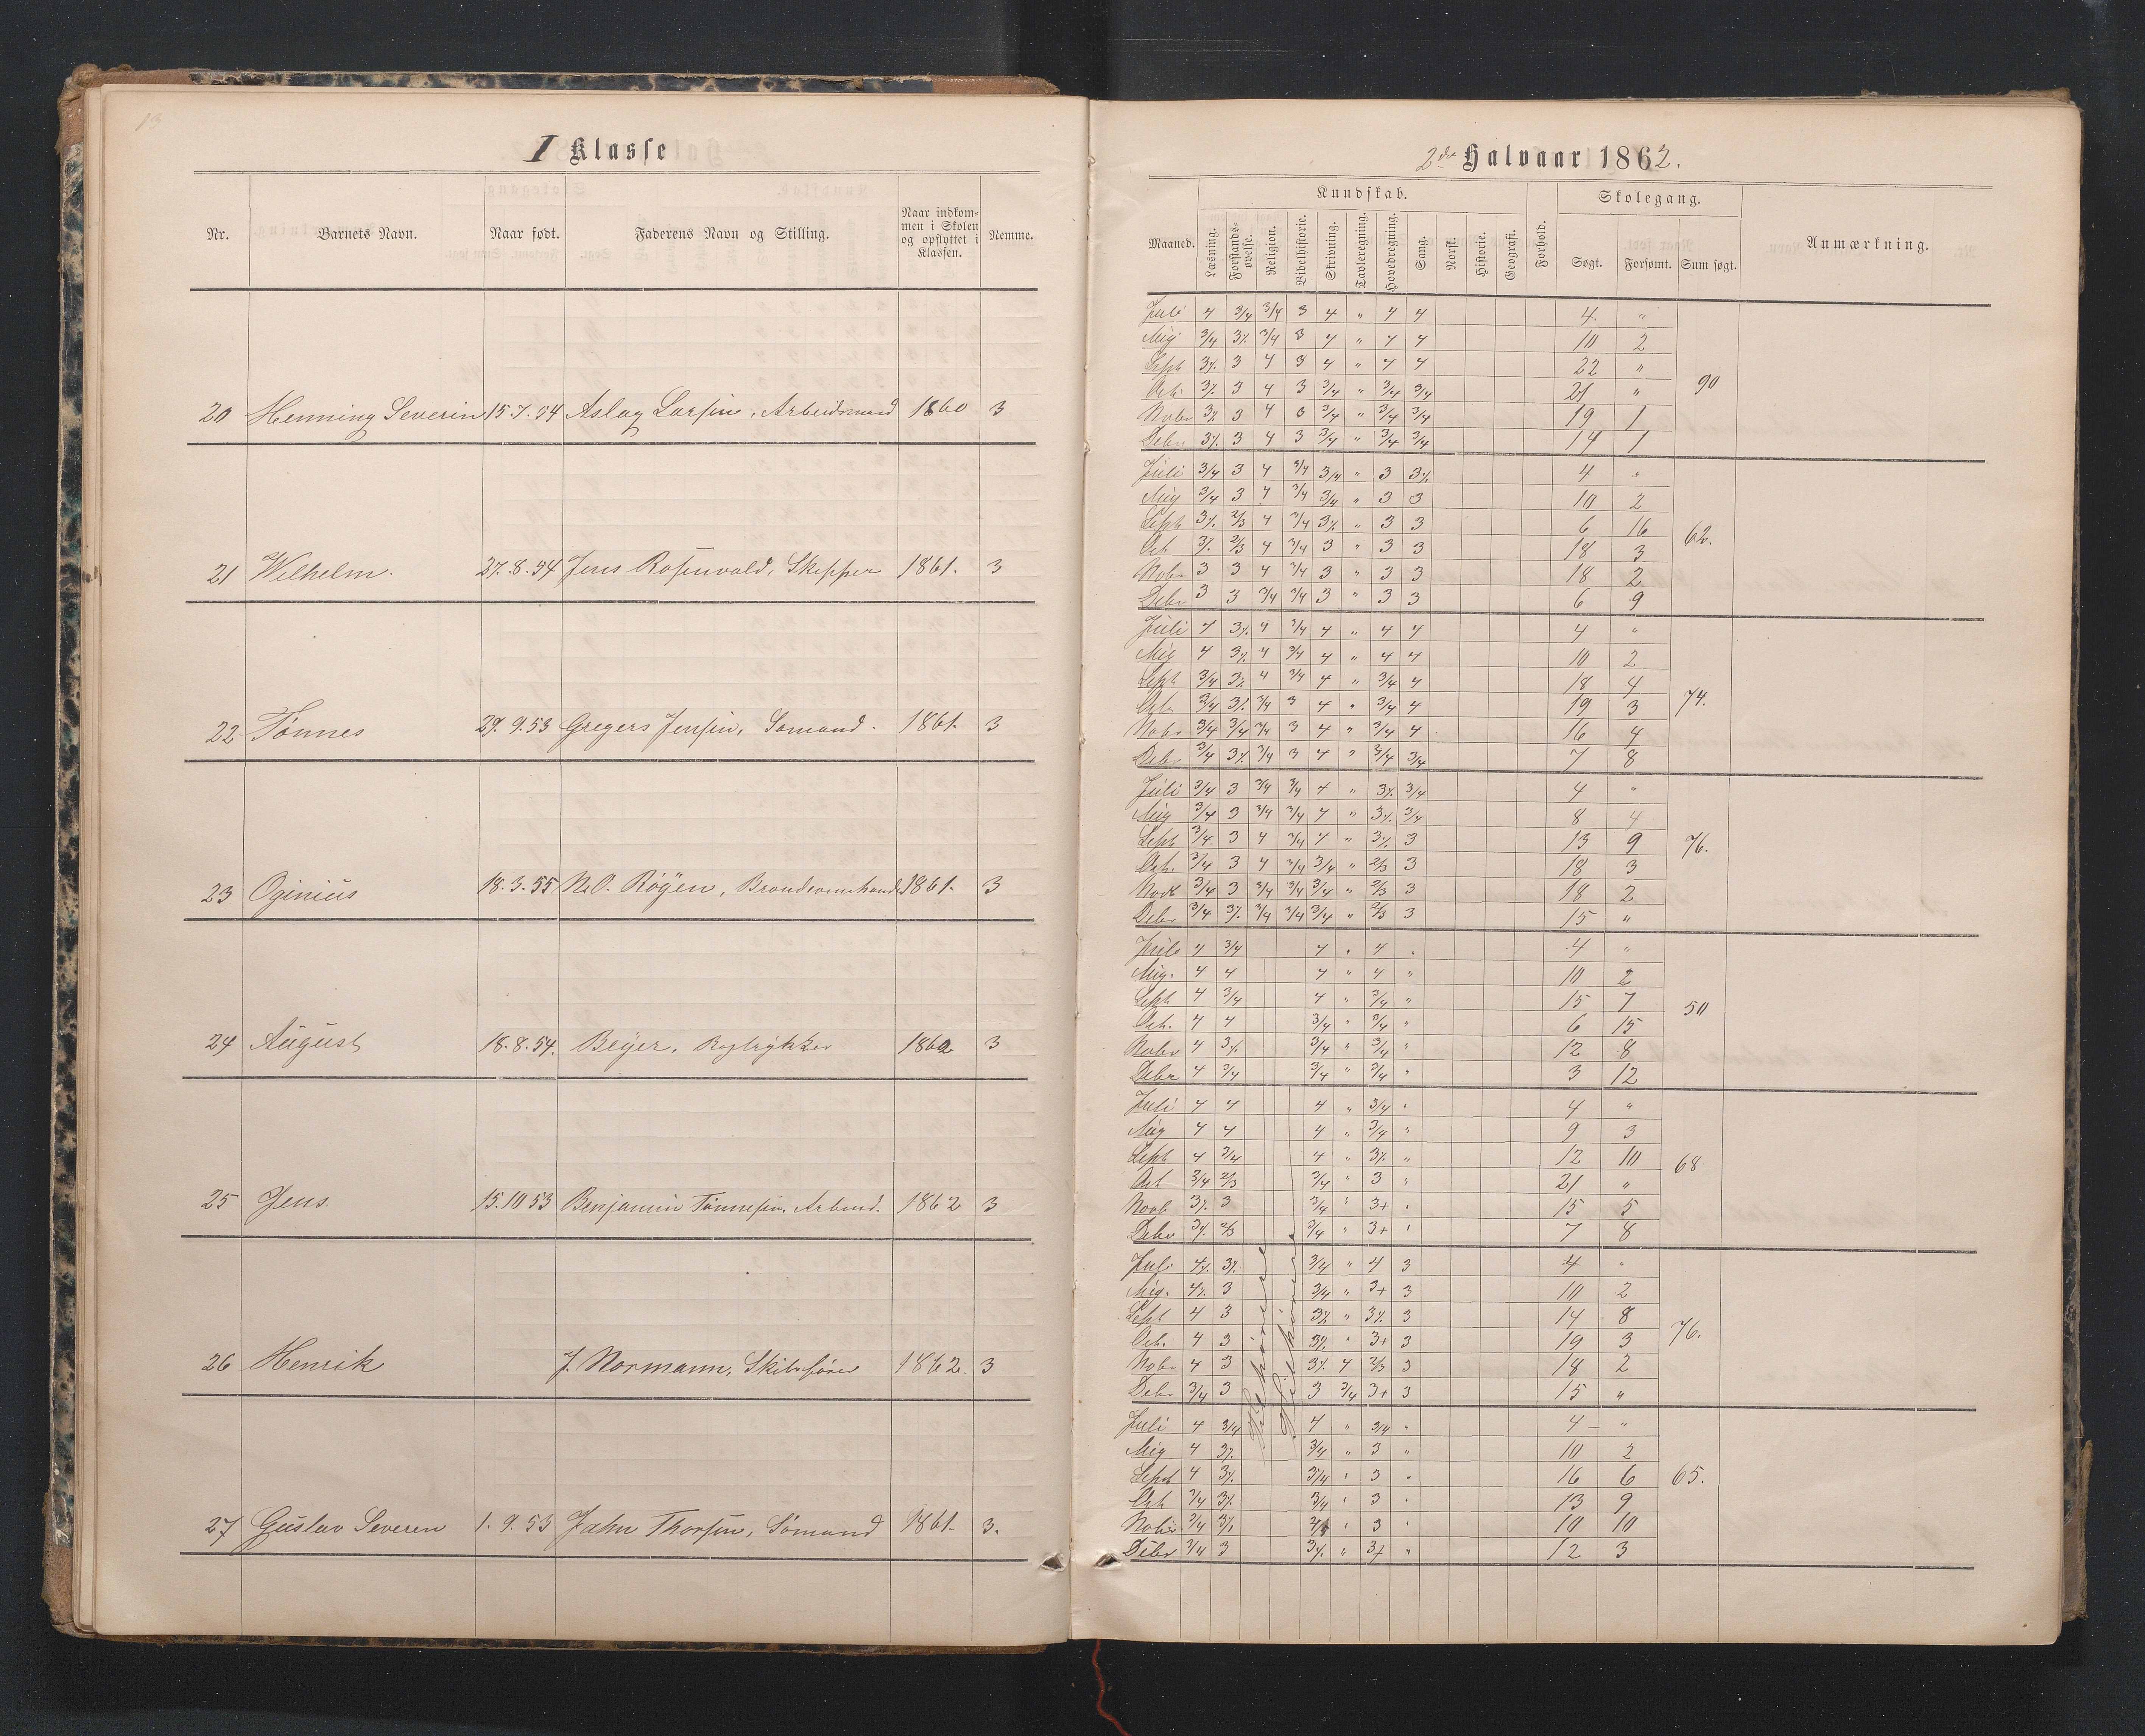 13
I Klasse
Nr. Barnets Navn. Naar født. Faderens Navn og Stilling. Naar indkommen i Skolen og opflyttet i Klassen. Nemme.
20 Henning Severin 15.7.54 Aslag Larsen, Arbeidsmand 1860 3
21 Wilhelm. 27.8.54 Jens Rosenvold, Skipper 1861. 3
22 Tønnes 29.9.53 Gregers Jensen, Sømand. 1861. 3
23 Oginius 18.3.55 N.O. Røyen, 1861. 3
24 August 18.8.54. Beyer, 1862 3
25 Jens. 15.10 53 Benjamin Tønnesen, Arbmd. 1862 3
26 Henrik J. Normann, Skibsfører 1862. 3
27 Gustav Severen 1.9.53 Jahn Thorsen, Sømand 1861. 3.
2det Halvaar 1862.
Kundskab. Skolegang.
Maaned. Læsning. Forstandsøvelse. Religion. Bibelhistorie. Skrivning. Tavleregning. Hovedregning. Sang. Norsk. Historie. Geografi. Forhold. Søgt. Forsømt. Sum søgt. Anmærkning.
Juli 4 3/4 3/4 3 4 " 4 4 4. "
Aug 3/4 3% 3/4 3 4 " 4 4 10 2
Sept 3% 3 4 3 4 " 4 4 22 "
Oct. 3% 3 4 3 3/4 " 3/4 3/4 21 " 90
Novbr 3% 3 4 3 3/4 " 3/4 3/4 19 1
Debr 3% 3 4 3 3/4 " 3/4 3/4 14 1
Juli 3/4 3 4 3/4 3/4 " 3 3% 4 "
Aug 3/4 3 4 3/4 3/4 " 3 3 10 2
Sept 3% 2/3 4 3/4 3% " 3 3 6 16 62.
Oct 3% 2/3 4 3/4 3 " 3 3 18 3
Nobr 3 3 4 3/4 3 " 3 3 18 2
Debr 3 3 3/4 3/4 3 " 3 3 6 9
Juli 4 3% 4 3/4 4 " 4 4 4 "
Aug 4 3% 4 3/4 4 " 4 4 10 2
Sept 3/4 3% 4 3/4 4 " 3/4 4 18 4
Octr 3/4 3% 3/4 3 4 " 3/4 4 19 3 74.
Nobr 3/4 3/4 3/4 3 4 " 3/4 4 16 4
Debr 3/4 3% 3/4 3 4 " 3/4 3/4 7 8
Juli 3/4 3 3/4 3/4 4 " 3% 3/4 4 "
Aug 3/4 3 3/4 3/4 4 " 3% 3/4 8 4
Sept 3/4 3 4 3/4 4 " 3% 3 13 9 76.
Oct. 3/4 3 4 3/4 3/4 " 2/3 3 18 3
Novb 3/4 3 3/4 3/4 3/4 " 2/3 3 18 2
Debr 3/4 3% 3/4 3/4 3/4 " 2/3 3 15 "
Juli 4 3/4 4 " 4 " 4 "
Aug. 4 4 4 " 4 " 10 2
Sept 4 3/4 4 " 3/4 " 15 7 50
Oct. 4 4 3/4 " 3/4 " 6 15
Nobr 4 3% 3/4 " 3/4 " 12 8
Debr 4 3/4 3/4 " 3/4 " 3 12
Juli 4 4 4 " 3/4 " 4 "
Aug 4 4 4 " 3/4 " 9 3
Sept 4 3/4 4 " 3% " 12 10 68
Oct 3/4 2/3 3/4 " 3 " 21 "
Novb 3% 3 3/4 " 3+ " 15 5
Debr 3% 2/3 3/4 " 3+ " 7 8
Juli 4% 3% 3/4 " 4 3 4 "
Aug. 4% 3 3/4 " 3+ 3 10 2
Sept 4 3 3% " 3% 3 14 8
Oct. 4 3 3% " 3+ 3 19 3 76.
Nobr 4 3 3% 4 2/3 3 18 2
Debr 3/4 3 3 3/4 3+ 3 15 "
Juli 4 3/4 4 " 3/4 " 4 "
Aug 4 3% 3/4 " 3 " 10 2
Sept 4 3% 3/4 " 3 " 16 6 65.
Oct 3/4 3% 3/4 " 3 " 13 9
Nobr 3/4 3% " 3 " 10 10
Debr 3/4 3 3% " 3+ " 12 3